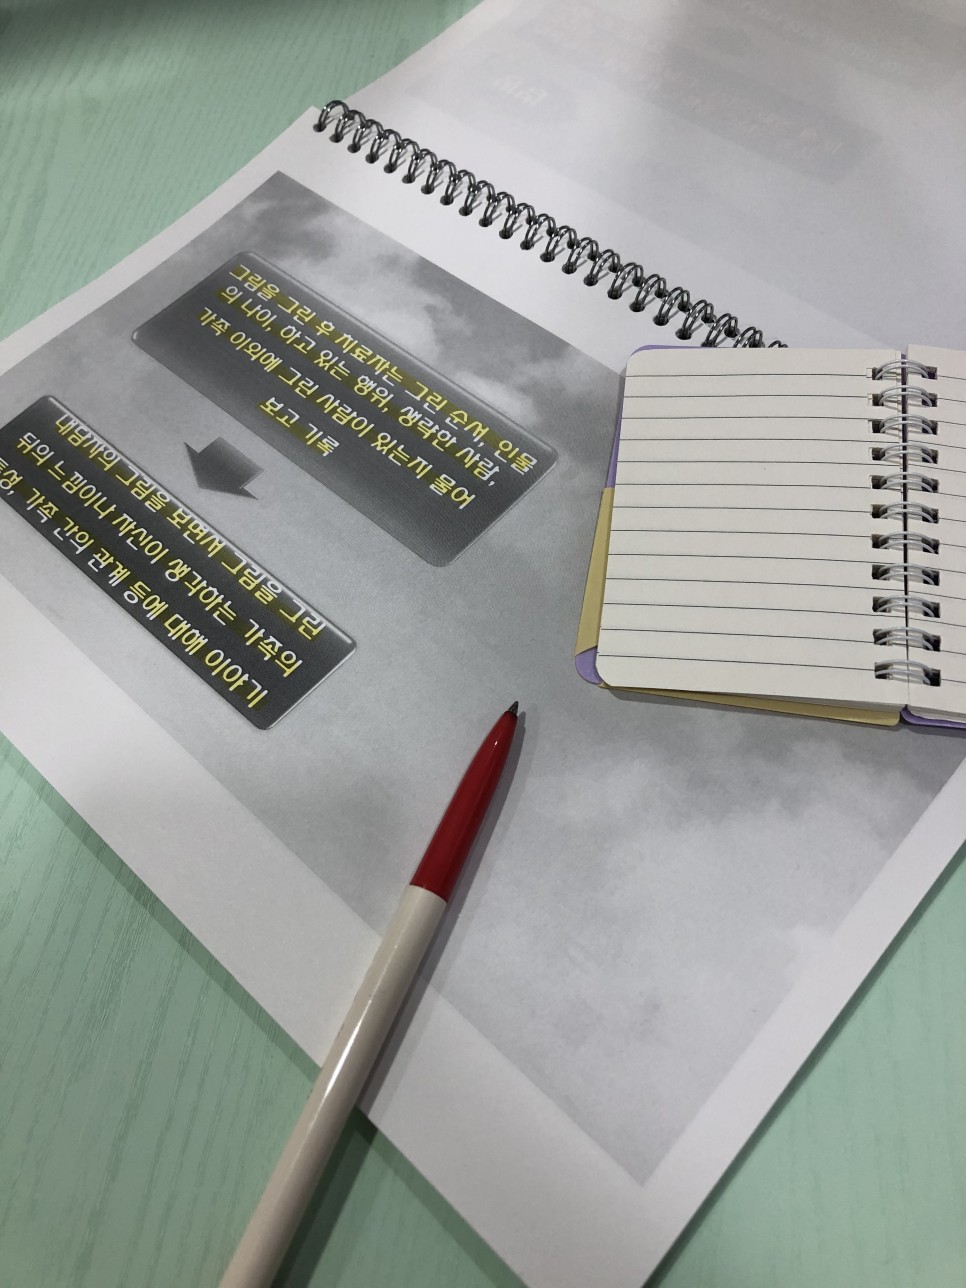 그림을 그린 후 치료자는 그린 순서, 인물
의 나이, 하고 있는 행위, 생략한 사람,
가족 이외에 그린 사람이 있는지 물어
보고 기록
내담자의 그림을 보면서 그림을 그린
뒤의 느낌이나 자신이 생각하는 가족의
특성, 가족 간의 관계 등에 대해 이야기